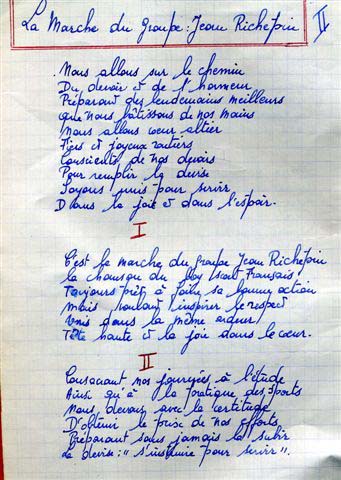 La Marche du Groupe: Jean Richepin
II
Nous allons sur le chemin
Du devoir et de l'honneur
Préparant des lendemains meilleurs
que nous bâtissons de nos mains
Nous allons coeur altier
Fiers et joyeux routiers
Conscients de nos devoirs
Pour remplir la devise
Soyons unis pour servir
Dans la joie et dans l'espoir.
I
C'est la marche du groupe Jean Richepin
la chanson du boy scout Français
Toujours prêt à faire sa bonne action
Mais voulant inspirer le respect
Unis dans la même ardeur
Tête haute et la joie dans le coeur.
II
Consacrant nos journées à l'étude
Ainsi qu'à la pratique des sports
Nous devons avec la certitude
D'obtenir le prix de nos efforts
Préparant sans jamais la subir
La devise: "s'instruire pour servir".